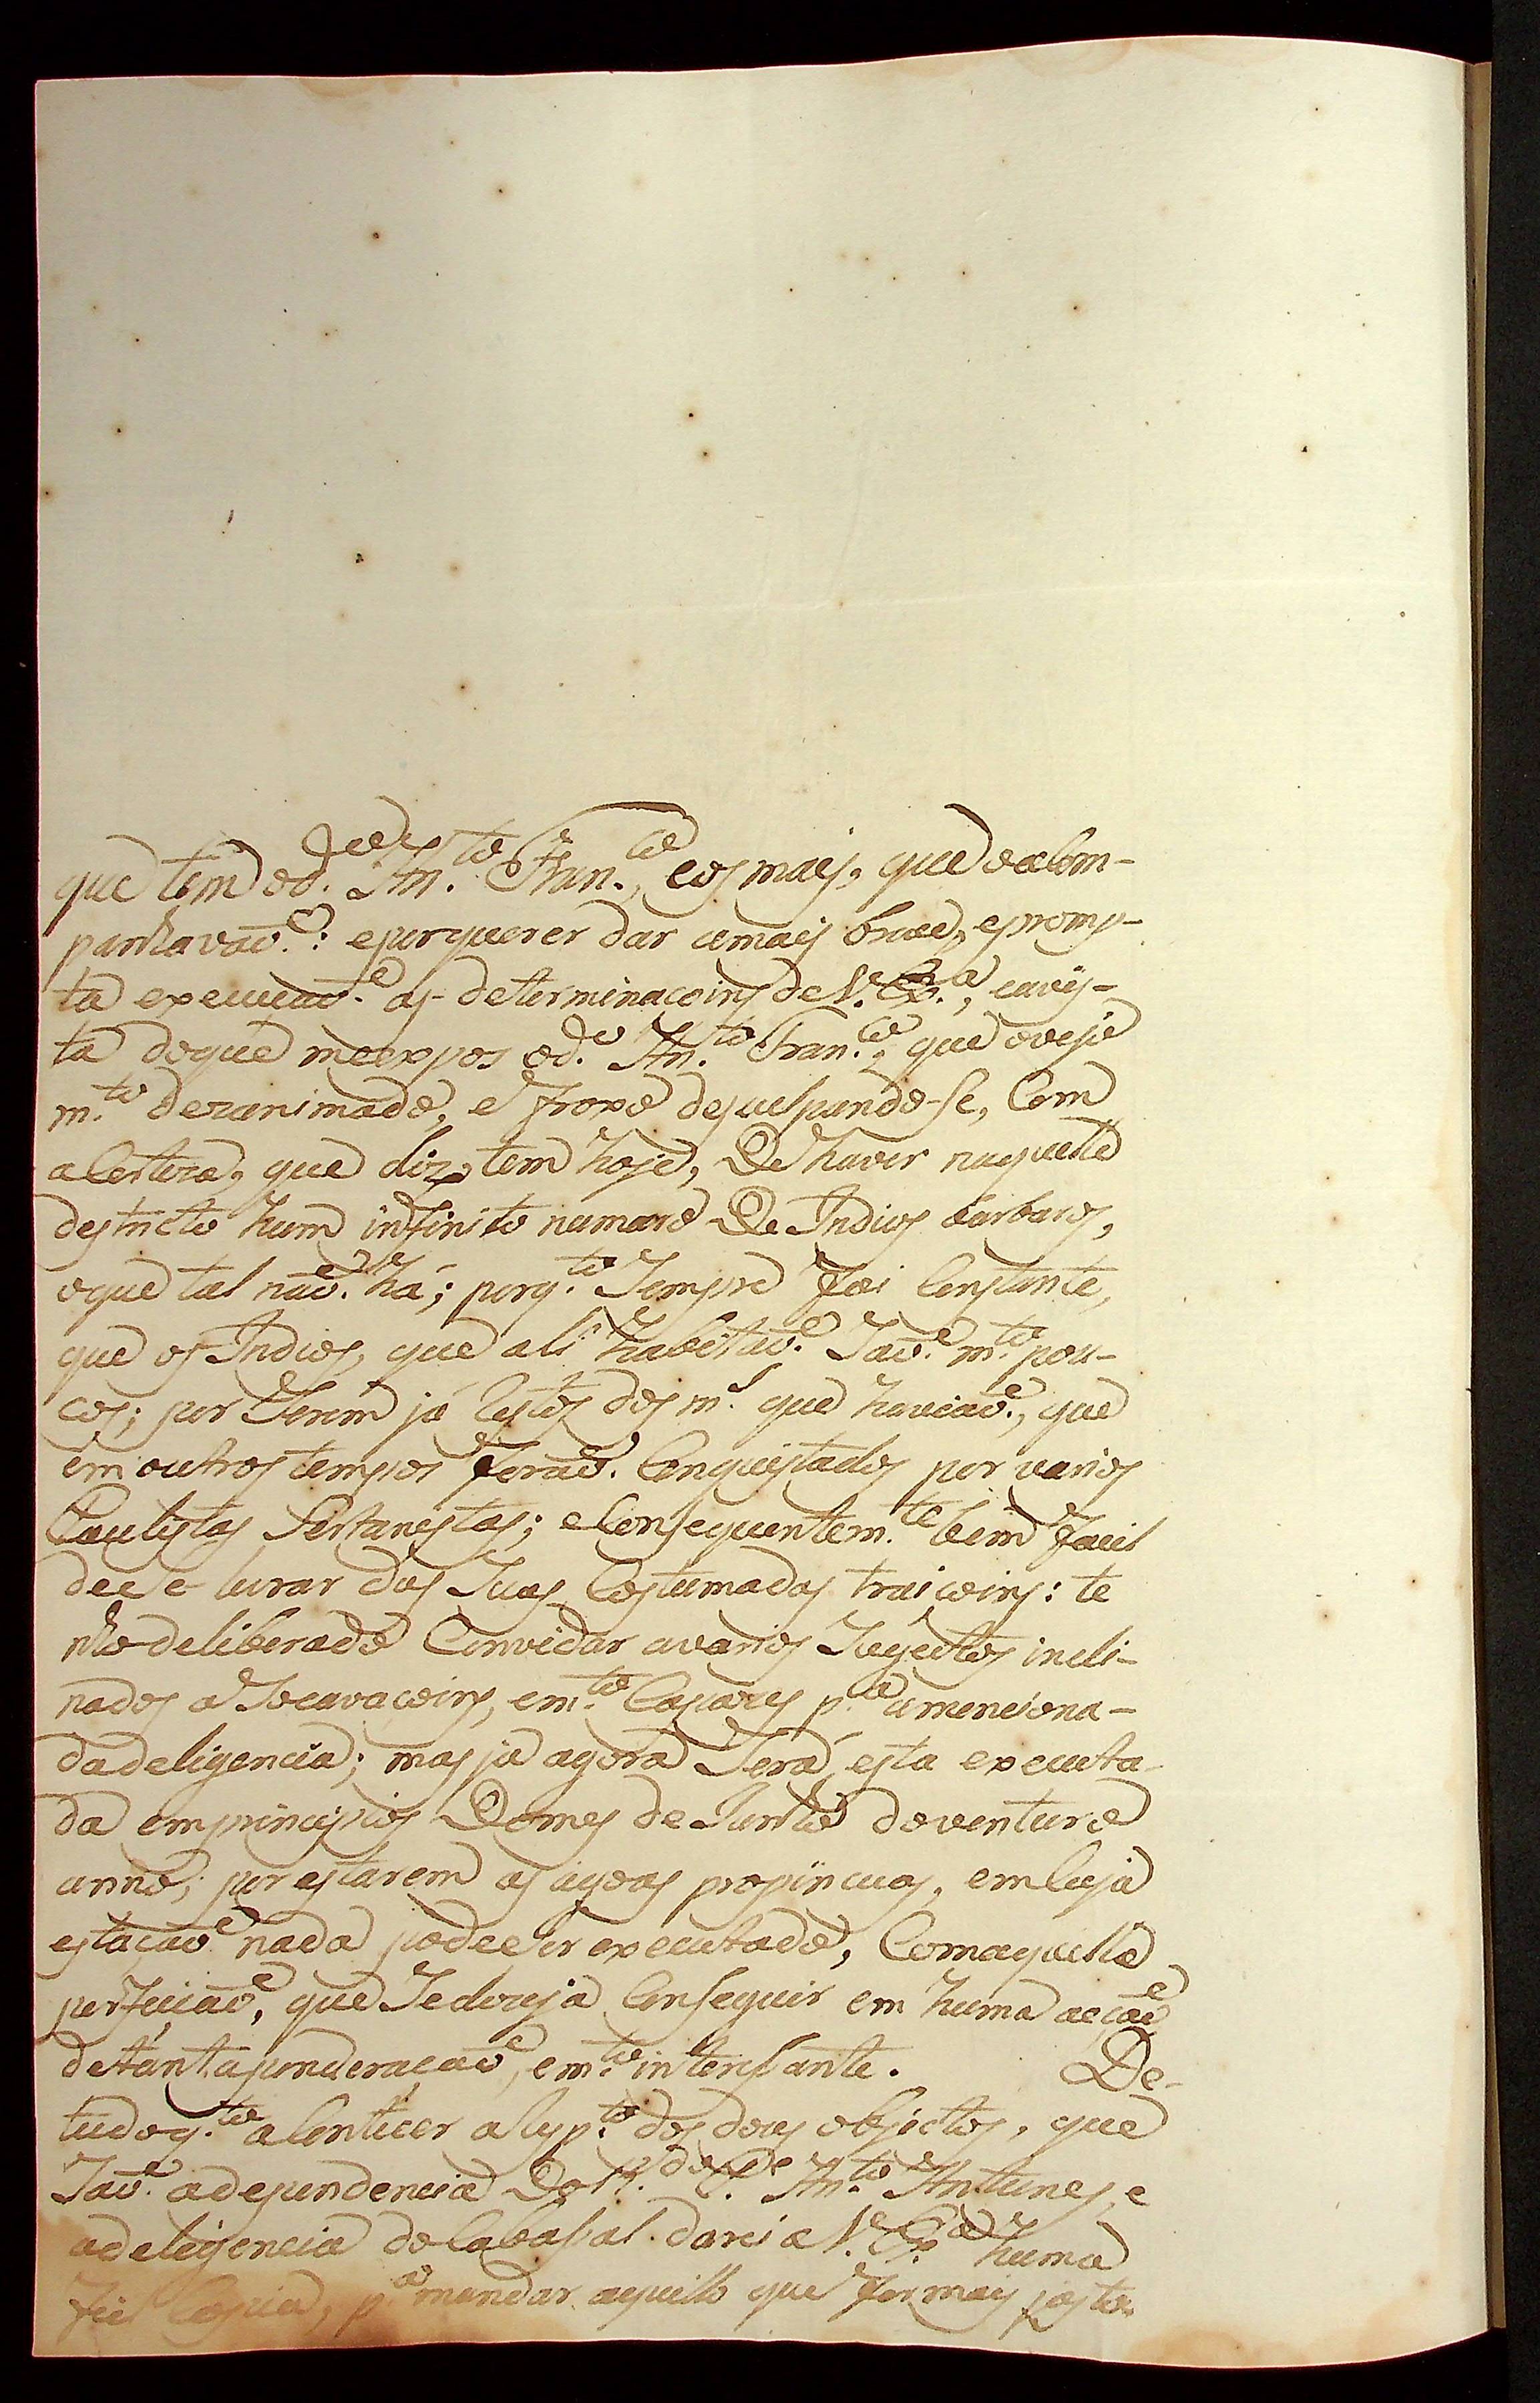 que tem o d.º An.to Fran.co, e os mais, que o acom-
panhavaõ: e por querer dar a mais breve, e promp-
ta execuçaõ as determinaçoins de V. Ex.a, e a vis-
ta do que me expos o d.º An.to Fran.co, que o vejo
m.to dezanimado, e froxo desculpando-se, com
a certeza, que diz, tem hoje, De haver naquelle
destricto hum infinito numaro De Indios barbaros,
o que tal naõ há; porq.to sempre foi constante,
que os Indios, que ali habitaõ saõ m.to pou-
cos; por serem já restos dos m.s que haviaõ, que
em outros tempos foraõ conquistados por varios
Paulistas Sertanistas; e consequentem.te bem facil
de se livrar das suas costumadas traiçoins: te
nho deliberado convidar a varios sugeitos incli-
nados a socavaçoins, e m.to capazes p.a a menciona-
da deligencia; mas já agora será esta executa-
da em principios Do mes de Junho do venturo
anno; por estarem as agoas propincuas, em cuja
estaçaõ nada pode ser executado, com aquella
perfeiçaõ, que se dezeja conseguir em huma acçaõ
de tanta ponderaçaõ, e m.to interesante. De-
tudo q.to acontecer a resp.to dos dois objectos, que
saõ a dependencia Do R.do P.e An.to Antunes, e
a deligencia do Cabasal darei a V. Ex.a huma
fiel copia, p.a mandar aquillo que for mais justo.